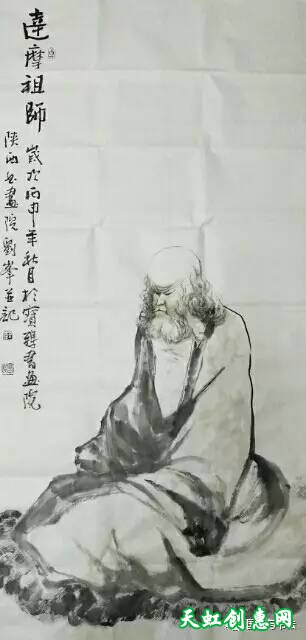 達摩祖師
歲次丙申年秋月於寶雞書画院
陝西書畫院劉峯並記
天虹创惠网